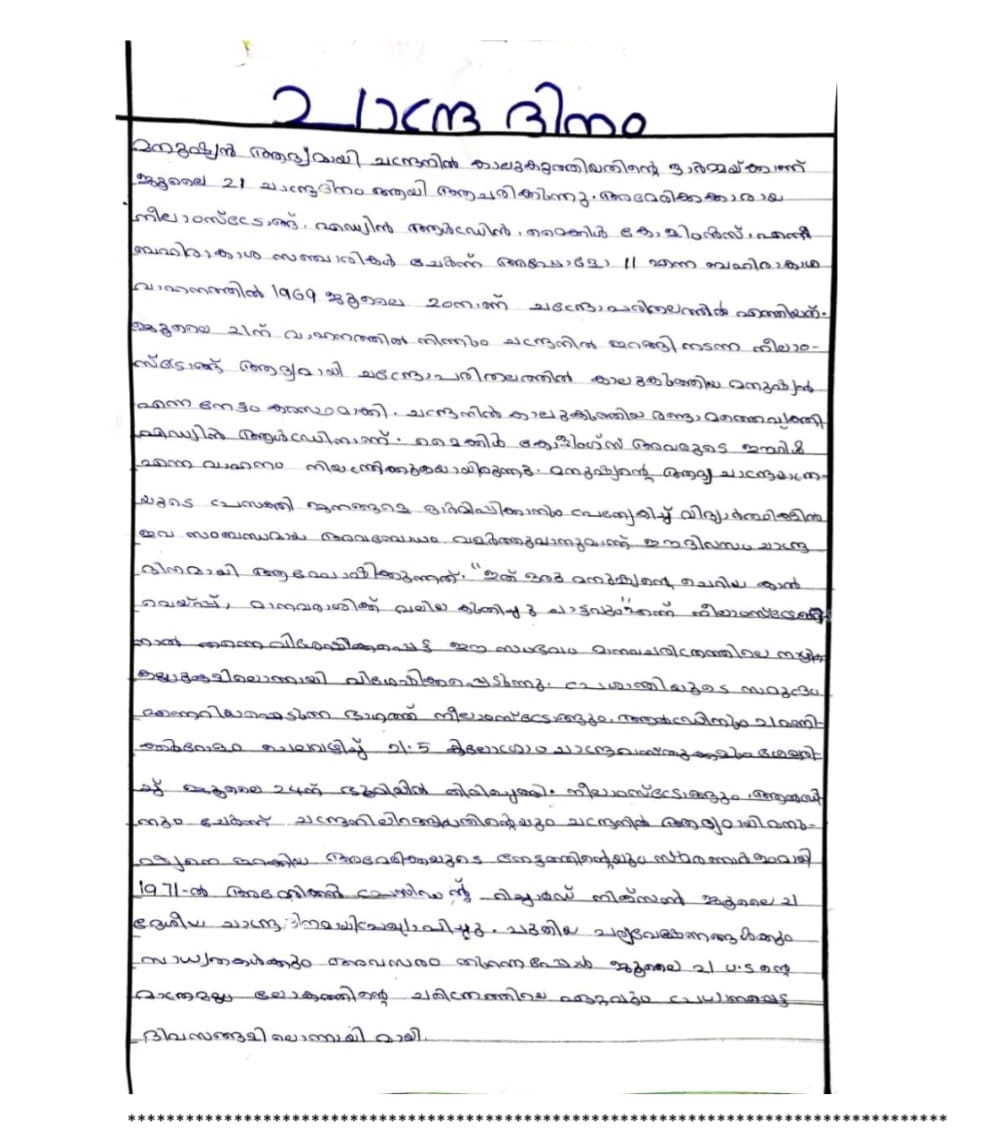 ചാന്ദ്ര ദിനം
മനുഷ്യൻ ആദ്യമായി ചന്ദ്രനിൽ കാലുകുത്തിയതിന്റെ ഓർമ്മയ്ക്കാണ്
ജൂലൈ 21 ചാന്ദ്രദിനം ആയി ആചരിക്കുന്നു. അമേരിക്കക്കാരായ
നീലാംസ്ട്രോങ്ങ്, എഡ്വിൻ ആൾഡ്രിൻ, മൈക്കിൾ കോളിൻസ്, എന്നീ
ബഹിരാകാശ സഞ്ചാരികൾ ചേർന്ന് അപ്പോളോ 11 എന്ന ബഹിരാകാശ
വാഹനത്തിൽ 1969 ജൂലൈ 20ന്ാണ് ചന്ദ്രോപരിതലത്തിൽ എത്തിയത്.
ജൂലൈ 21ന് വാഹനത്തിൽ നിന്നും ചന്ദ്രനിൽ ഇറങ്ങി നടന്ന നീലാം-
സ്ട്രോങ്ങ് ആദ്യമായി ചന്ദ്രോപരിതലത്തിൽ കാലുകുത്തിയ മനുഷ്യൻ
എന്ന നേട്ടം കരസ്ഥമാക്കി. ചന്ദ്രനിൽ കാലുകുത്തിയ രണ്ടാമത്തെവ്യക്തി
എഡ്വിൻ ആൾഡ്രിനാണ്. മൈക്കിൾ അവരുടെ ഈഗിൾ
എന്ന വാഹനം നിയന്ത്രിക്കുകയായിരുന്നു. മനുഷ്യന്റെ ആദ്യ ചാന്ദ്രയാത്ര-
യുടെ പ്രസക്തി ജനങ്ങളെ ഓർമിപ്പിക്കാനും പ്രത്യേകിച്ച് വിദ്യാർത്ഥികളിൽ
ഇവ സംബന്ധമായ അവബോധം വളർത്തുവാനുമാണ് ഈദിവസം ചാന്ദ്ര
ദിനമായി ആഘോഷിക്കുന്നത്. "ഇത് ഒരു മനുഷ്യന്റെ ചെറിയ കാൽ
വെയ്പ്പ്, മാനവരാശിക്ക് വലിയ കുതിച്ചു ചാട്ടവും" എന്ന് നീലാംസ്ട്രോങ്ങി
നാൽ തന്നെ വിശേഷിക്കപ്പെട്ട ഈ സംഭവം മാനവചരിത്രത്തിലെ
വിശേഷിക്കപ്പെടുന്നു. പ്രശാന്തിയുടെ സമുദ്രം
ഭാഗത്ത് നീലാംസ്ട്രോങ്ങും, ആൾഡ്രിനും 2 മണി-
ക്കൂർനേരം ചെലവഴിച്ച് 21.5 കിലോഗ്രാം ചാന്ദ്രവസ്തുക്കളും ശേഖരി-
ച്ച് ജൂലൈ 24ന് ഭൂമിയിൽ തിരിച്ചെത്തി. നീലാംസ്ട്രോങ്ങും, ആൾഡ്രി
നും ചേർന്ന് ചന്ദ്രനിലിറങ്ങിയതിന്റെയും ചന്ദ്രനിൽ ആദ്യമായി മനു-
ഷ്യനെ ഇറക്കിയ അമേരിക്കയുടെ നേട്ടത്തിന്റെയും സ്മരണാർത്ഥമായി
1971-ൽ അമേരിക്കൻ പ്രസിഡന്റ് റിച്ചാർഡ് നിക്സൺ ജൂലൈ 21
ദേശീയ ചാന്ദ്ര ദിനമായിപ്രഖ്യാപിച്ചു. പുതിയ പര്യവേഷണങ്ങൾക്കും
സാധ്യതകൾക്കും അവസരം ജൂലൈ 21 U.S ന്റെ
മാത്രമല്ല ലോകത്തിന്റെ ചരിത്രത്തിലെ ഏറ്റവും പ്രധാനപ്പെട്ട
ദിവസങ്ങളിലൊന്നായി മാറി.
**********************************************************************************